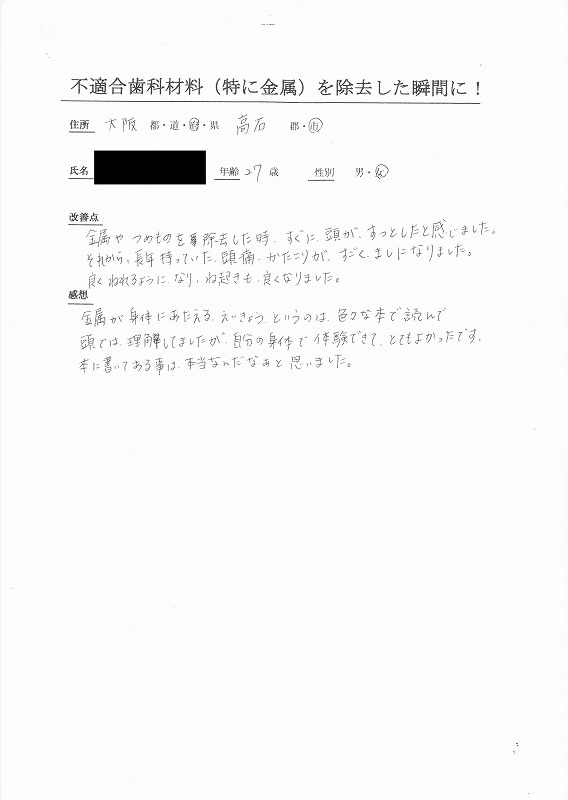 不適合歯科材料（特に金属）を除去した瞬間に！
住所 大阪 都・道・府・県 高石 郡・市
氏名 年齢 27 歳 性別 男・女
改善点
金属や つめものを除去した時、すぐに、頭が、すっとしたと感じました。
それから、長年持っていた、頭痛、かたこりが、すごく、ましになりました。
良くねれるように、なり、ね起きも、良くなりました。
感想
金属が身体にあたえる、えいきょう、というのは、色々な本で読んで
頭では、理解してましたが、自分の身体で体験できて、とてもよかったです。
本に書いてある事は、本当なんだなぁと思いました。